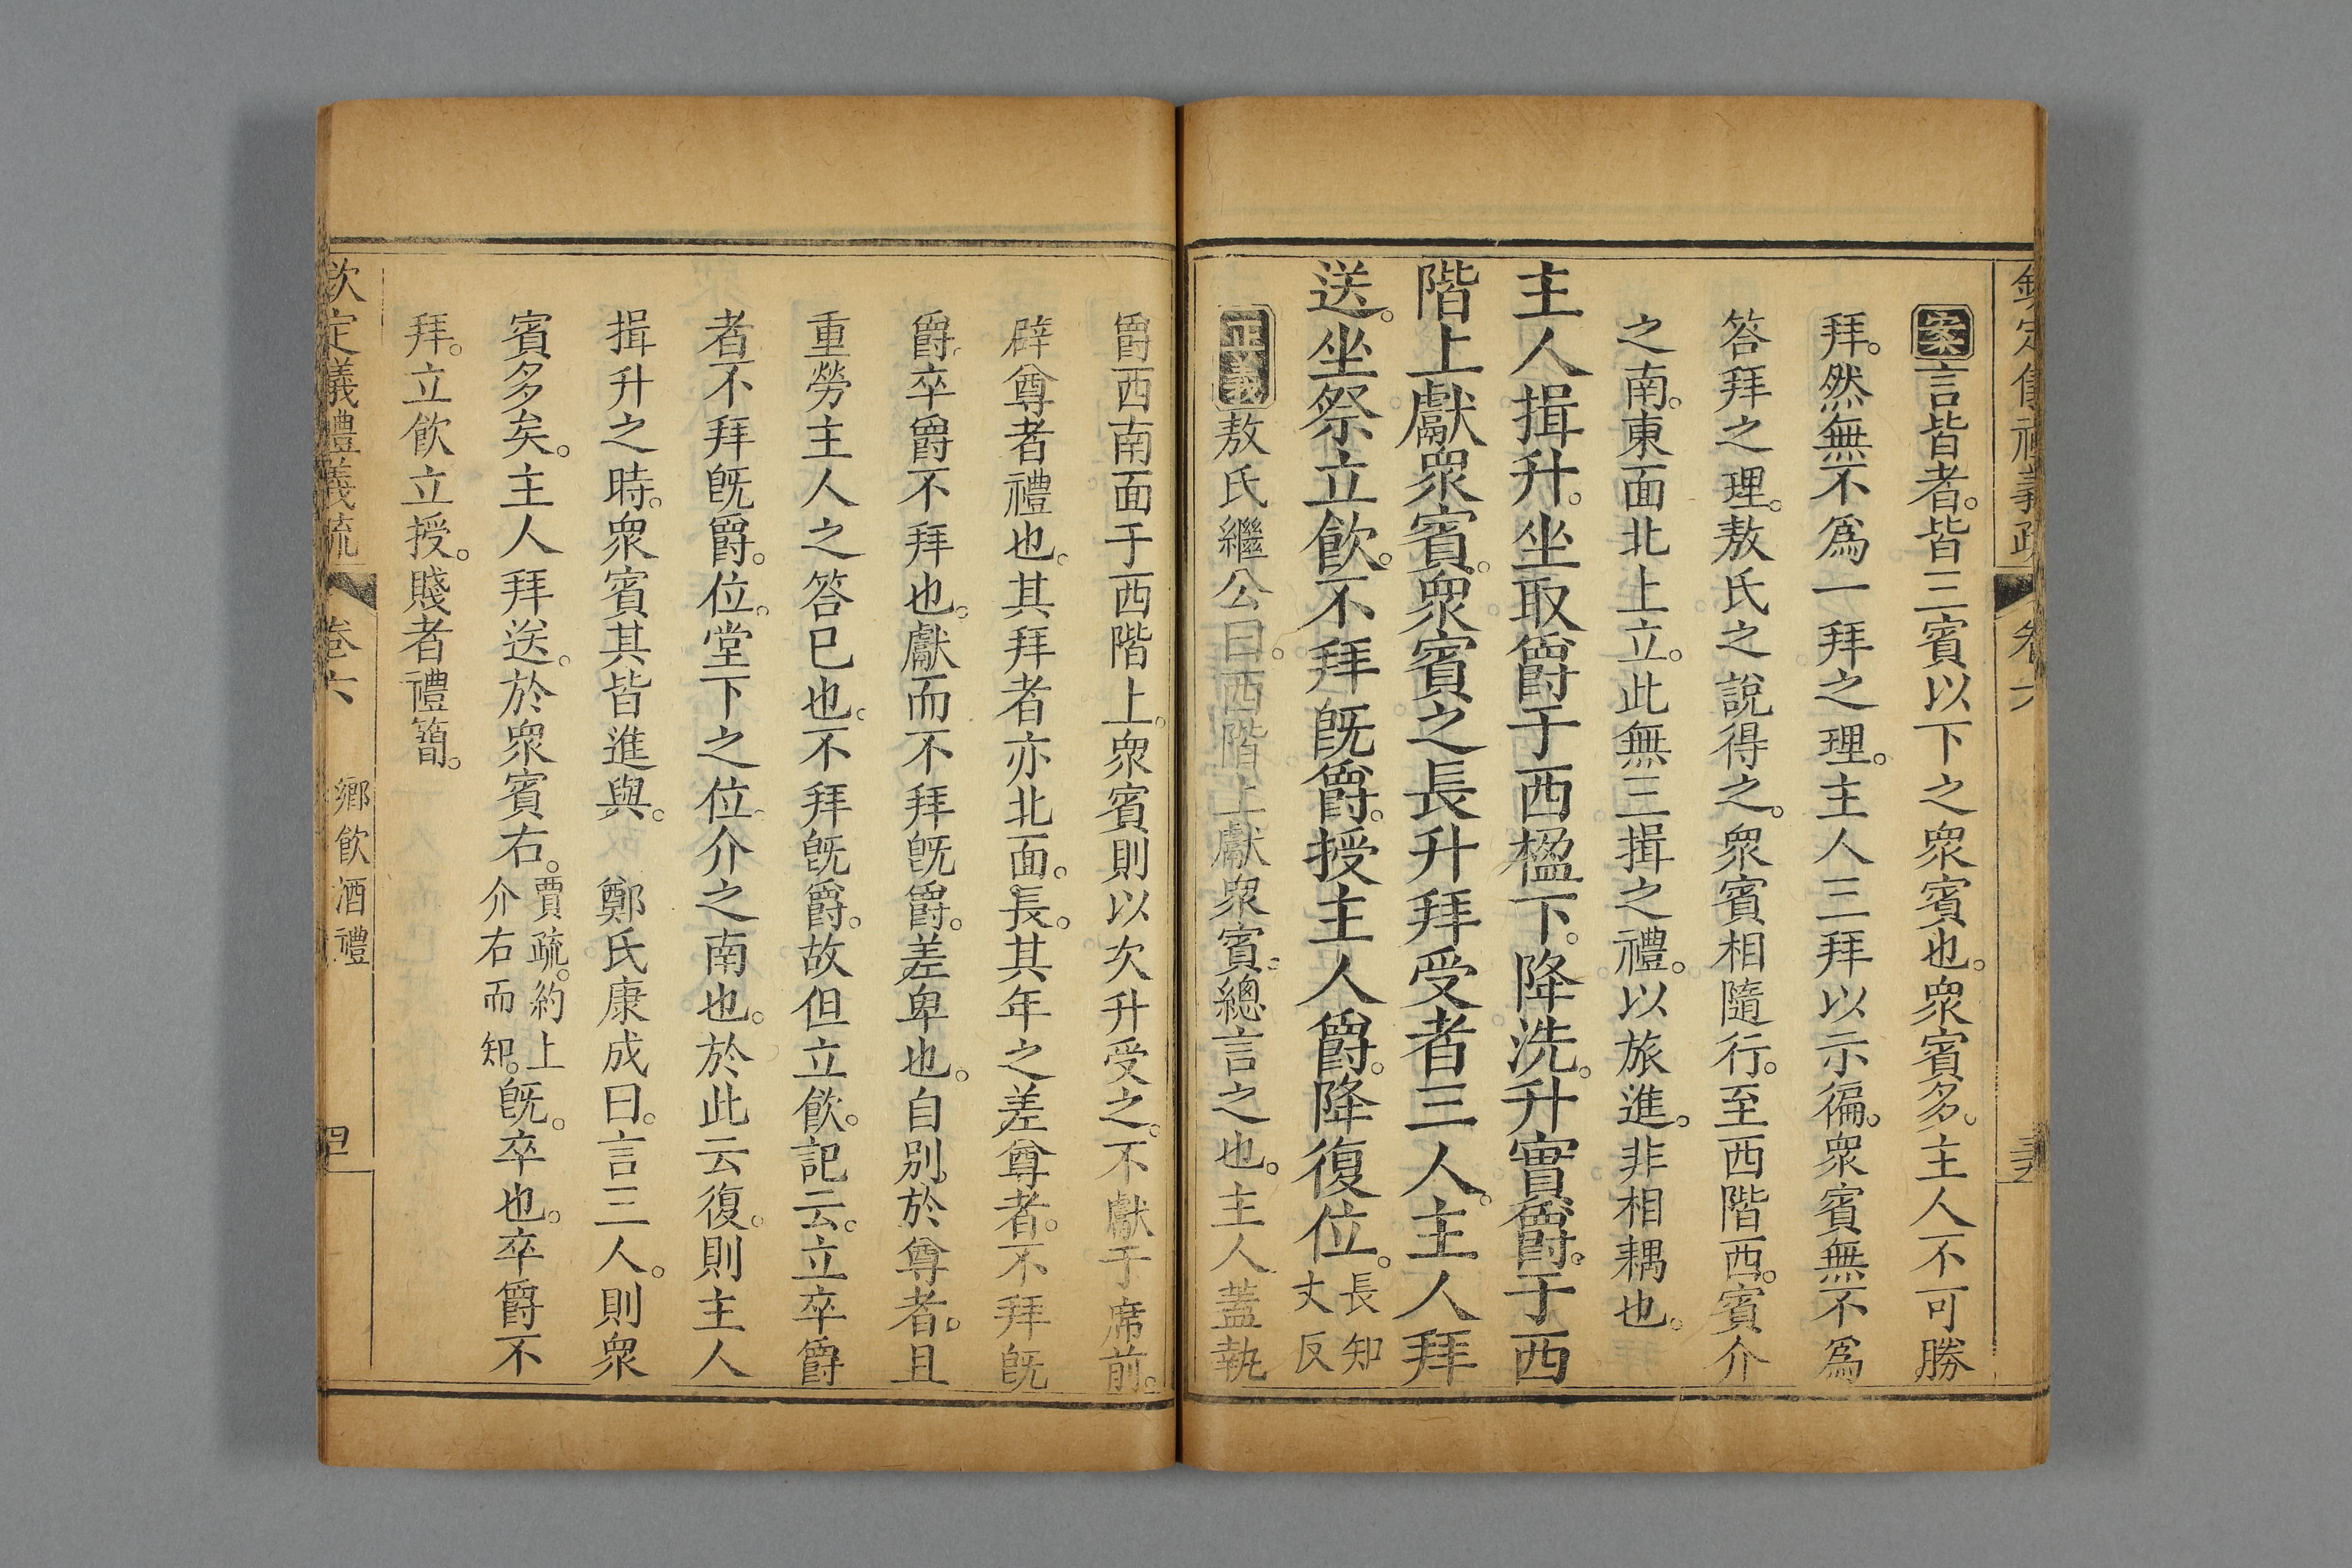 欽定儀禮義疏 卷六
案言皆者。皆三賓以下之衆賓也。衆賓多。主人不可勝
拜。然無不爲一拜之理。主人三拜以示徧。衆賓無不爲
答拜之理。敖氏之說得之。衆賓相隨行。至西階西。賓介
之南。東面北上立。此無三揖之禮。以旅進。非相耦也。
主人揖升。坐取爵于西楹下。降洗。升實爵。于西
階上獻衆賓。衆賓之長升拜受者三人。主人拜
送。坐祭立飮。不拜旣爵。授主人爵。降復位。長知丈反
正義敖氏繼公曰。西階上獻衆賓。總言之也。主人蓋執
爵西南面于西階上。衆賓則以次升受之。不獻于席前。
辟尊者禮也。其拜者亦北面。長。其年之差尊者。不拜旣
爵。卒爵不拜也。獻而不拜旣爵。差卑也。自別於尊者。且
重勞主人之答已也。不拜旣爵。故但立飮。記云。立卒爵
者不拜旣爵。位。堂下之位。介之南也。於此云復。則主人
揖升之時。衆賓其皆進與。 鄭氏康成曰。言三人。則衆
賓多矣。主人拜送。於衆賓右。賈疏。約上介右而知。旣。卒也。卒爵不
拜。立飮立授。賤者禮簡。
欽定儀禮義疏 卷六 鄉飮酒禮